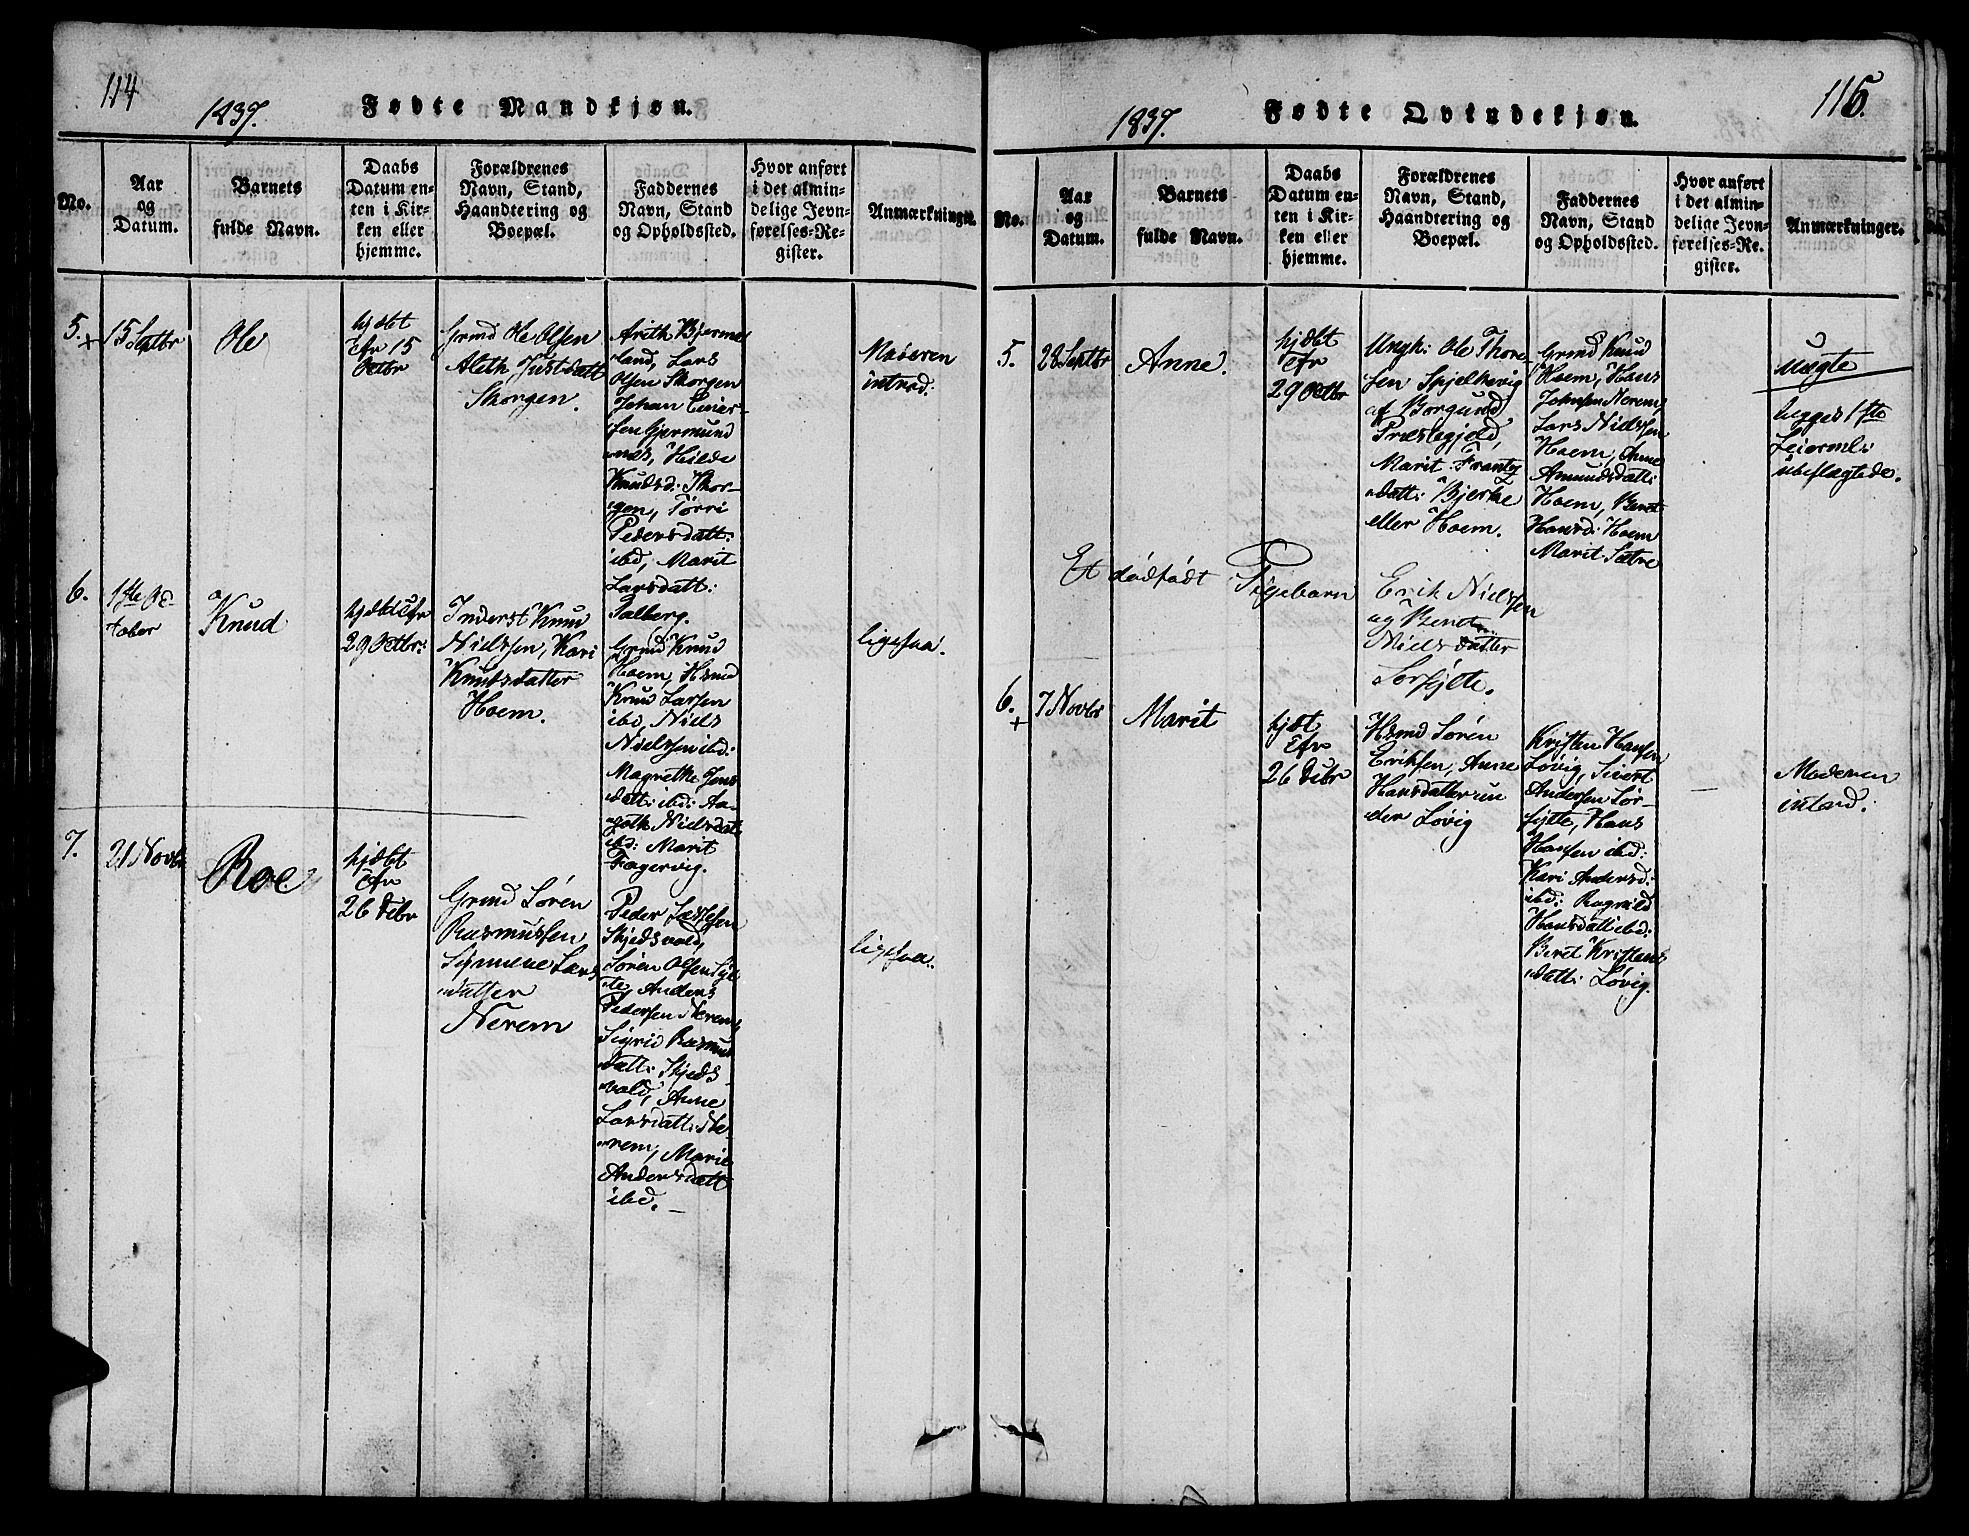 114
1837.
Fødte Mandkjøn.
No.
Aar
og
Datum.
Barnets
fulde Navn.
Daabs
Datum en-
ten i Kir-
ken eller
hjemme.
Forældrenes
Navn, Stand,
Haandtering og
Boepæl.
Faddernes
Navn, Stand
og Opholdssted.
Hvor anført
i det almin-
delige Jevn-
førelses-Re-
gister.
Anmærkninger.
5.
+
15 Septbr
Ole
hjdbt
Cfr 15
Octbr
Grmd Ole Olsen
Aleth Justdatt
Skorgen.
Areth Bjerme
land, Lars
Olsen Skorgen
Johan Einer-
sen Gjermund
næs, Hilde
Knudsd: Skor-
gen, Torri
Pedersdatt:
ibd, Marit
Larsdatt:
Dalberg.
Moderen
introd:
6.
1ste Oc-
tober
Knud
hjdbt Cfr
29 Octbr:
Inderst Knud
Nielssen, Kari
Knudsdatter
Hoem.
Grmd Knud
Hoem, Hsmd
Knud Larsen
ibd, Niels
Nielssen ibd:
Magrethe Jons
datt: ibd: Aa-
goth Nielsdatt
ibd: Marit
Fagervig.
ligesaa.
7.
21 Novbr
Roe
hjdbt
Cfr
26 Debr
Grmd Søren
Rasmussen
Synneve Lars
datter
Nerem
Peder Larssen
Skjedsvold,
Søren Olsen Syl
te, Anders
Pedersen Nerem,
Sigrid Rasmus
datt: Skjeds-
vold, Anne
Larsdatt: Ne-
rem, Marie
Andersdatt
ibd.
ligesaa.
115.
1837.
Fødte Qvindekjøn.
No.
Aar
og
Datum.
Barnets
fulde Navn.
Daabs
Datum en-
ten i Kir-
ken eller
hjemme.
Forældrenes
Navn, Stand,
Haandtering og
Boepæl.
Faddernes
Navn, Stand
og Opholdssted.
Hvor anført
i det almin-
delige Jevn-
førelses-Re-
gister.
Anmærkninger.
5.
28 Septbr
Anne.
hjdbt
Cfr
29 Octbr
Ungk: Ole Thore
sen Spjelkevig
af Borgund
Præstegjeld,
Marit Frantz
datt: Bjerke
eller Hoem.
Grmd Knud
Hoem, Hans
Johnsen Nerem,
Lars Nielssen
Hoem, Anne
Amundsdatt:
Hoem, Beret
Hansd: Hoem
Marit Sætre
Uægte
begges 1ste
Leierml:
ubeslægtede.
Et dødfødt Pigebarn
Erik Nielssen
og Beret
Nielsdatter
Sorsylte.
6.
+
7 Novbr
Marit
hjdt
Cfr
26 Debr
Hsmd Søren
Eriksen, Anne
Hansdatter un
der Løvig
Kristen Hansen
Løvig, Sivert
Andersen Sør-
sylte, Hans
Hansen ibd:
Kari Andersd:
ibd: Ragnild
Hansdatt ibd:
Beret Kristens
datt: Løvig.
Moderen
introd.